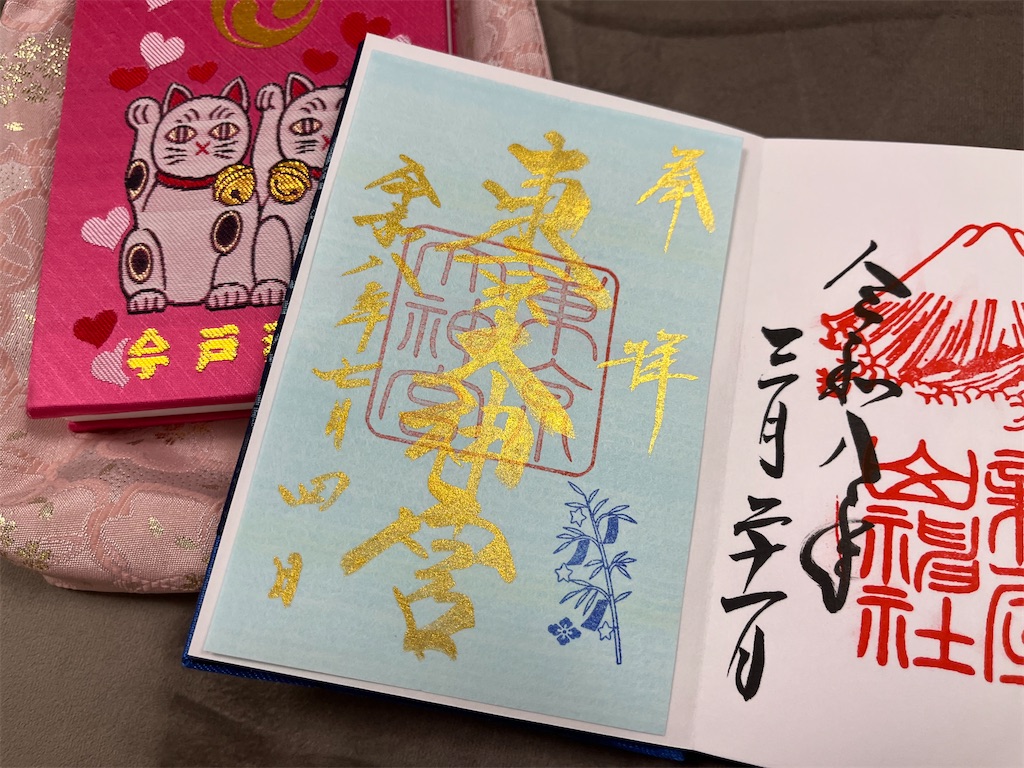 今戸
奉拝
東京大神宮
東京
大神宮
令和八年七月四日
令和八年
三月二十一日